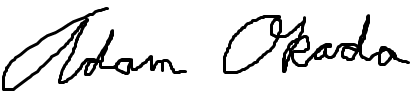 Adam Okada